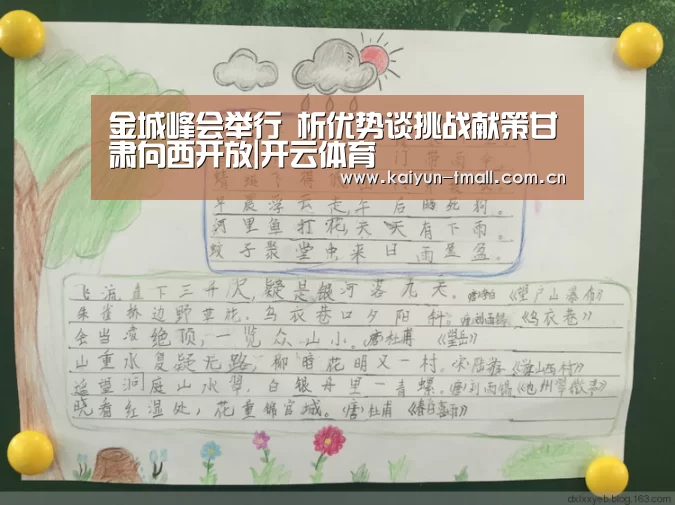 金城峰会举行 析优势谈挑战献策甘
肃向西开放|开云体育
www.kaiyun-tmall.com.cn
门 带 雨 伞
早晨浮云走,午后晒死狗。
河里鱼打花,天天有下雨。
蚊子聚堂中,来日雨盈盈。
飞流直下三千尺,疑是银河落九天。唐李白《望庐山瀑布》
朱雀桥边野草花,乌衣巷口夕阳斜。唐刘禹锡《乌衣巷》
会当凌绝顶,一览众山小。唐杜甫《望岳》
山重水复疑无路,柳暗花明又一村。宋陆游《游山西村》
遥望洞庭山水翠,白银丹里一青螺。唐刘禹锡
晓看红湿处,花重锦官城。唐杜甫《春日喜雨》
dxlxxyeb.blog.163.com